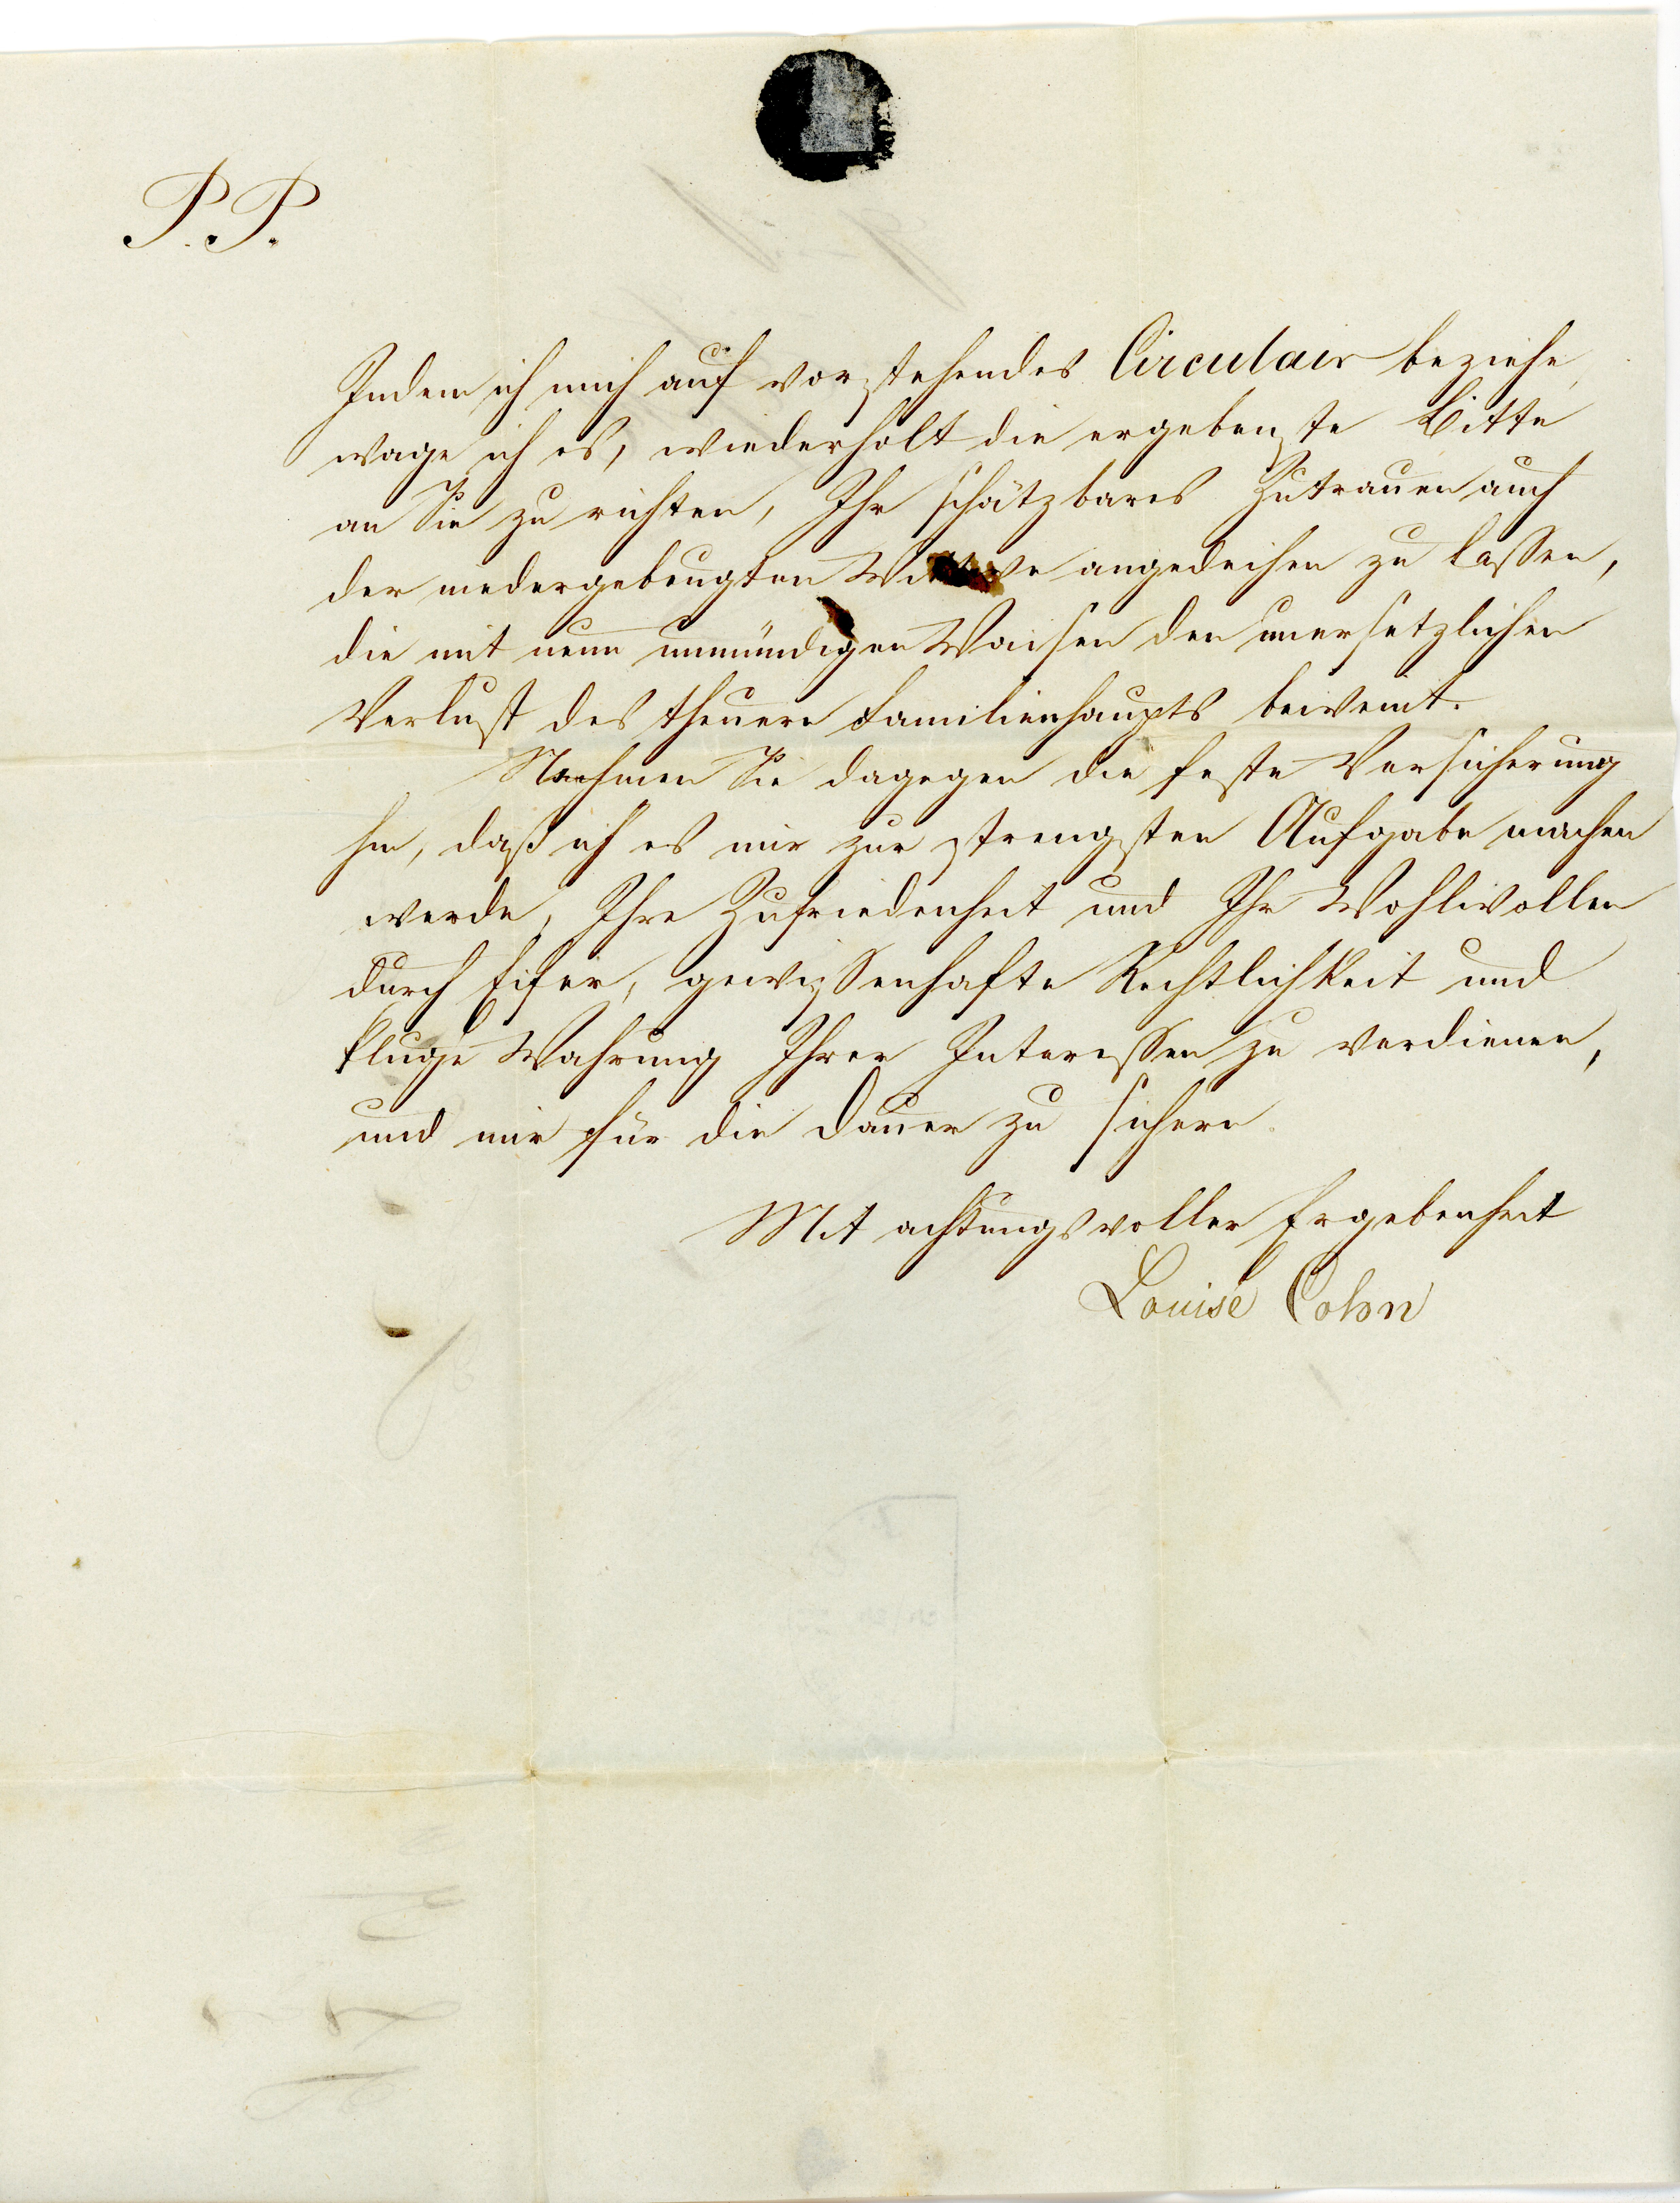 P. P.
Indem ich mich auf vorstehendes Circulair beziehe,
wage ich es, wiederholt die ergebenste Bitte
an Sie zu richten, Ihr schätzbares Zutrauen auch
der niedergebeugten Wittwe angedeihen zu lassen,
die mit neun unmündigen Waisen den unersetzlichen
Verlust des theuern Familienhaupts beweint.
Nehmen Sie dagegen die feste Versicherung
hin, daß ich es mir zur strengsten Aufgabe machen
werde, Ihre Zufriedenheit und Ihr Wohlwollen
durch Eifer, gewissenhafte Rechtlichkeit und
kluge Wahrung Ihrer Interessen zu verdienen,
und mir für die Dauer zu sichern.
Mit achtungsvoller Ergebenheit
Louise Cohn